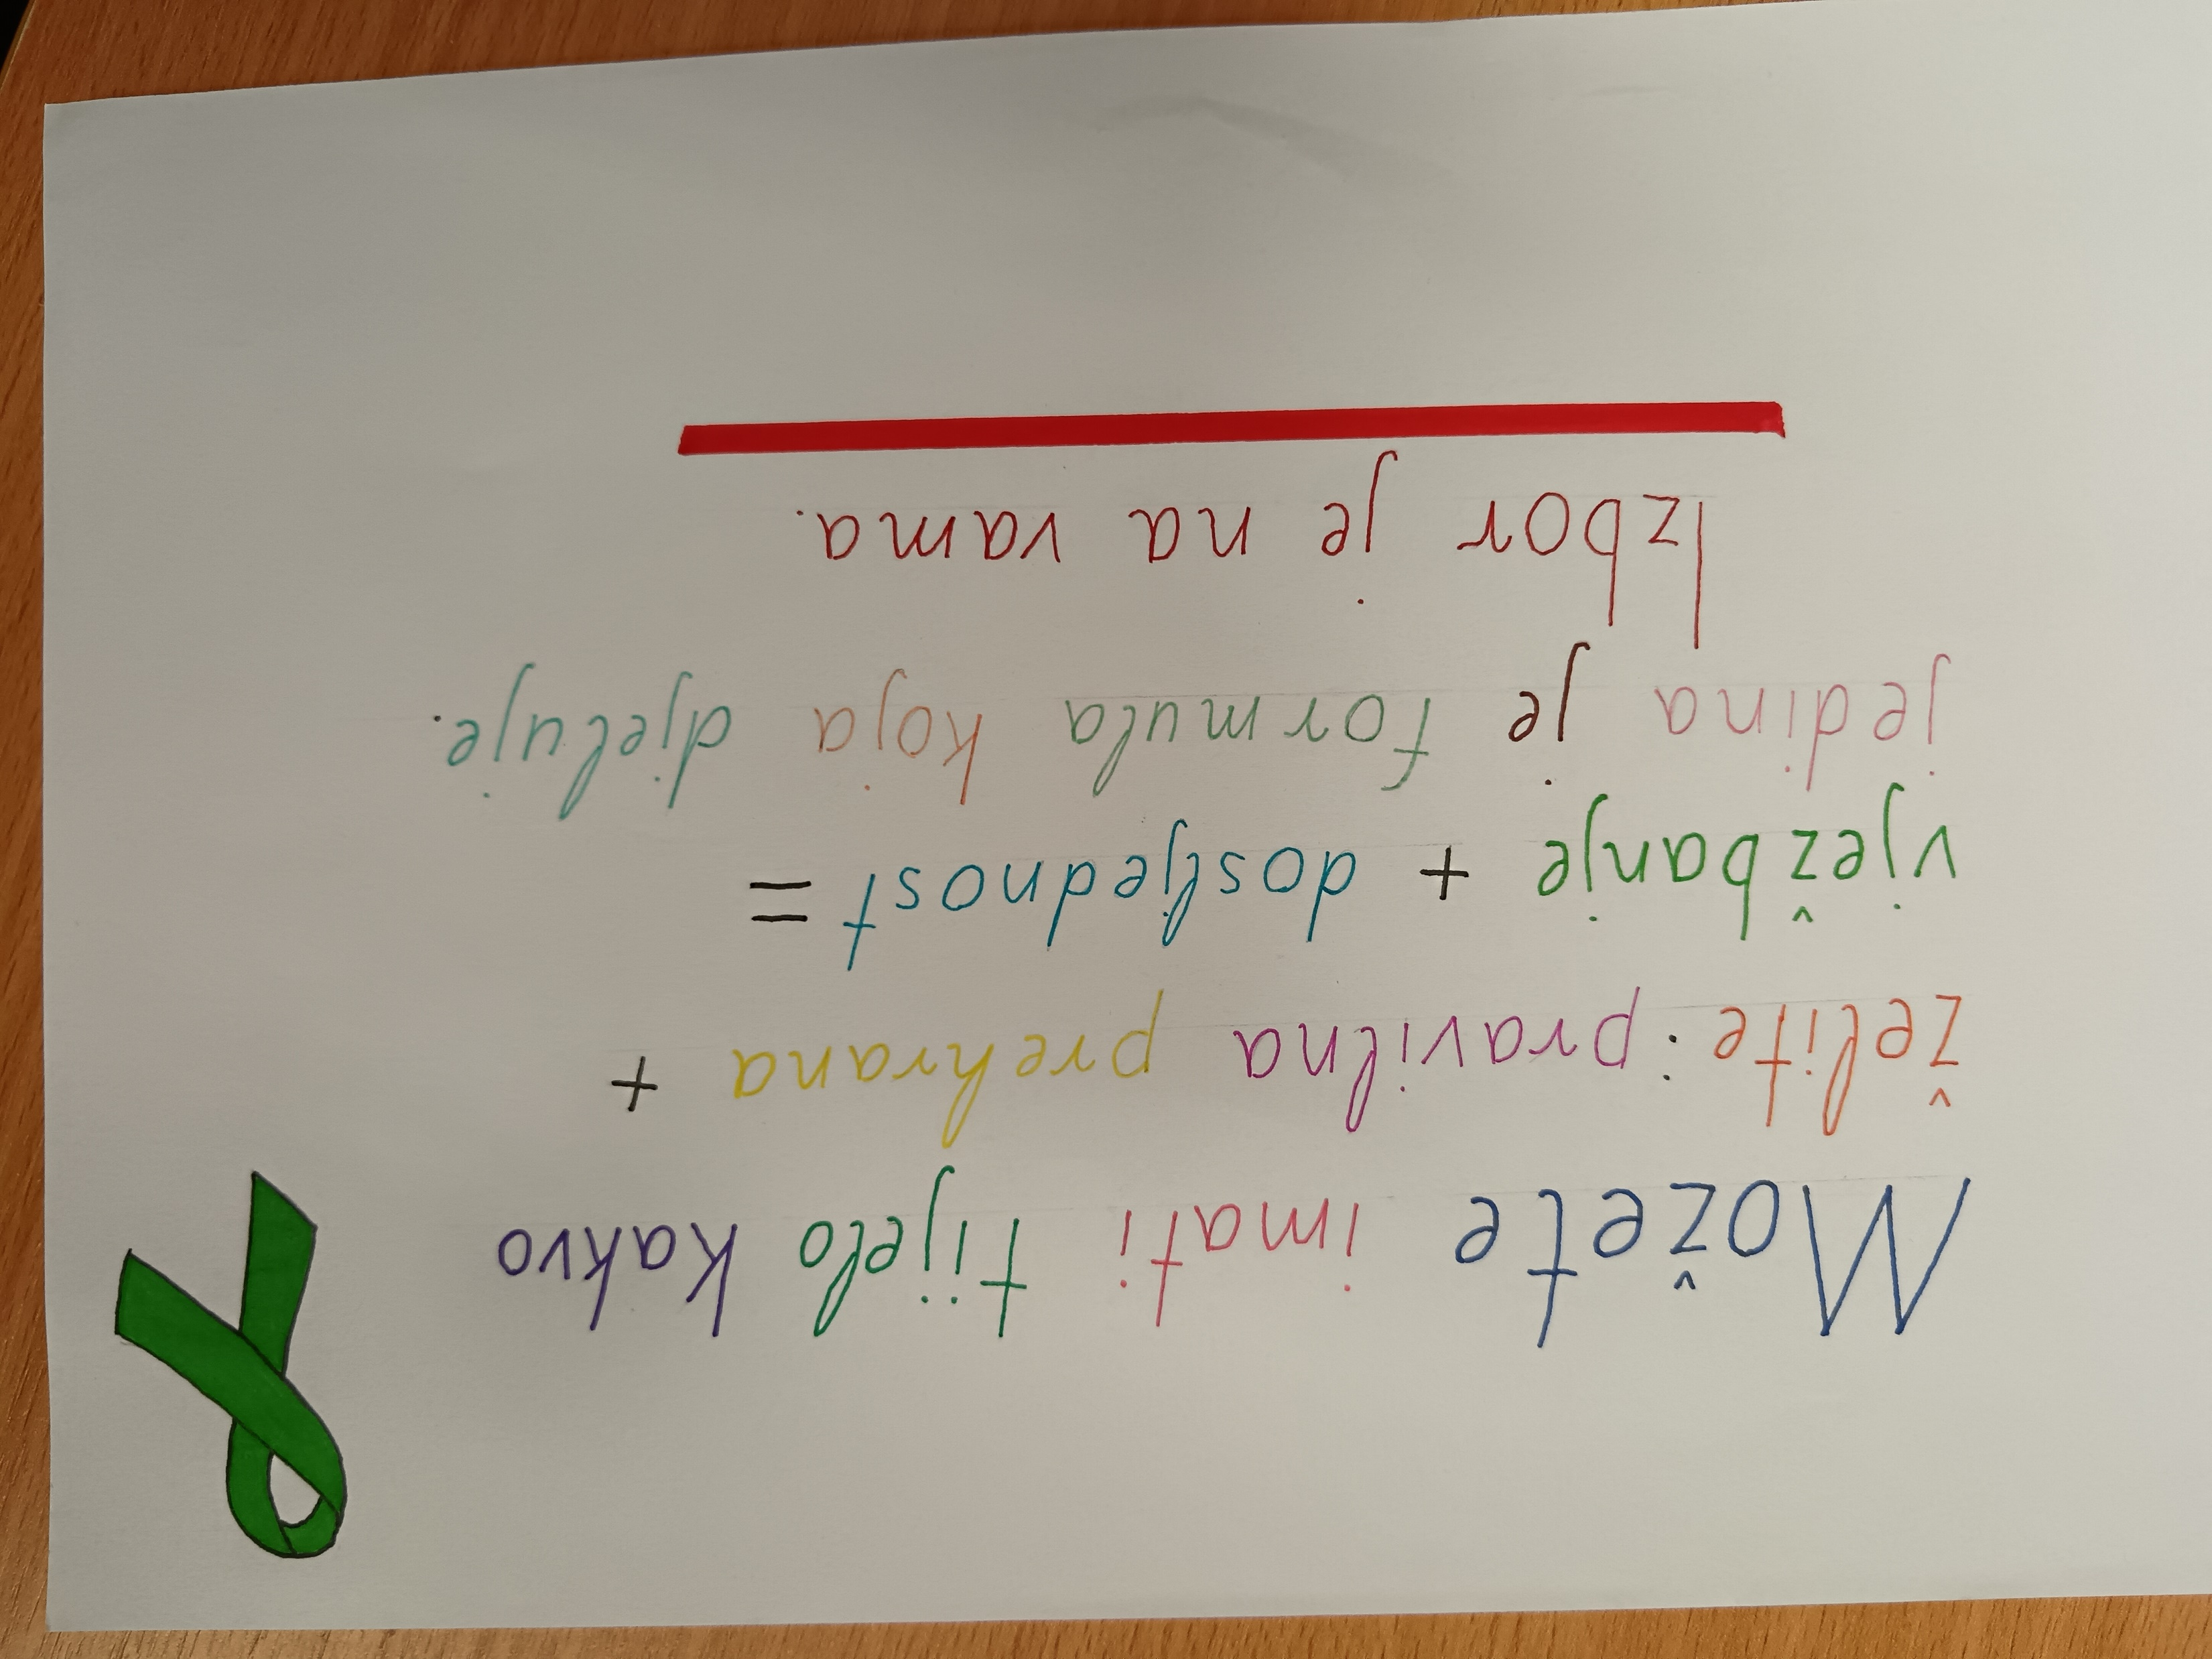 Možete imati tijelo kakvo
želite: pravilna prehrana +
vježbanje + dosljednost =
jedina je formula koja djeluje.
Izbor je na vama.